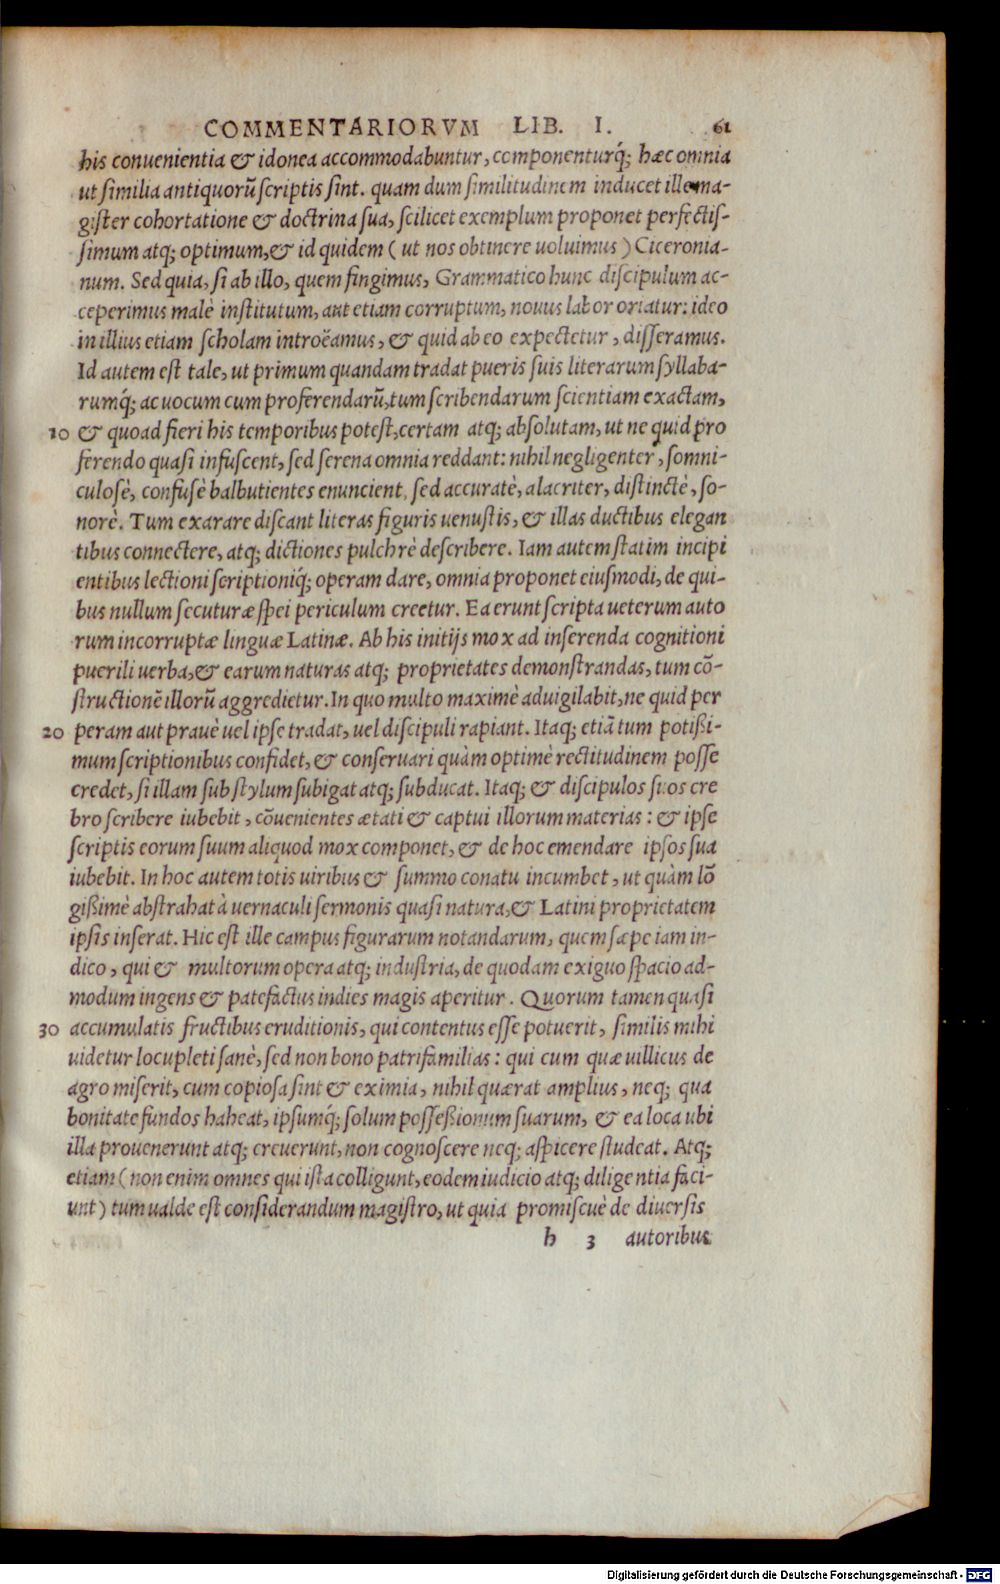 COMMENTARIORVM LIB. I. 61
his conuenientia & idonea accommodabuntur, componenturq́; hæc omnia
ut similia antiquorũ scriptis sint. quam dum similitudinem inducet ille ma-
gister cohortatione & doctrina sua, scilicet exemplum proponet perfectis-
simum atq; optimum, & id quidem ( ut nos obtinere uoluimus ) Ciceronia-
num. Sed quia, si ab illo, quem fingimus, Grammatico hunc discipulum ac-
ceperimus malè institutum, aut etiam corruptum, nouus labor oriatur: ideo
in illius etiam scholam introëamus, & quid ab eo expectetur, disseramus.
Id autem est tale, ut primum quandam tradat pueris suis literarum syllaba-
rumq́; ac uocum cum proferendarũ, tum scribendarum scientiam exactam,
10 & quoad fieri his temporibus potest, certam atq; absolutam, ut ne quid pro
ferendo quasi infuscent, sed serena omnia reddant: nihil negligenter, somni-
culosè, confusè balbutientes enuncient, sed accuratè, alacriter, distinctè, so-
norè. Tum exarare discant literas figuris uenustis, & illas ductibus elegan
tibus connectere, atq; dictiones pulchrè describere. Iam autem statim incipi
entibus lectioni scriptioniq́; operam dare, omnia proponet eiusmodi, de qui-
bus nullum secuturæ spei periculum creetur. Ea erunt scripta ueterum auto
rum incorruptæ linguæ Latinæ. Ab his initijs mox ad inserenda cognitioni
puerili uerba, & earum naturas atq; proprietates demonstrandas, tum cõ-
structionẽ illorũ aggredietur. In quo multo maximè aduigilabit, ne quid per
20 peram aut prauè uel ipse tradat, uel discipuli rapiant. Itaq; etiã tum potißi-
mum scriptionibus confidet, & conseruari quàm optimè rectitudinem posse
credet, si illam sub stylum subigat atq; subducat. Itaq; & discipulos suos cre
bro scribere iubebit, cõuenientes ætati & captui illorum materias: & ipse
scriptis eorum suum aliquod mox componet, & de hoc emendare ipsos sua
iubebit. In hoc autem totis uiribus & summo conatu incumbet, ut quàm lõ
gißimè abstrahat à uernaculi sermonis quasi natura, & Latini proprietatem
ipsis inserat. Hic est ille campus figurarum notandarum, quem sæpe iam in-
dico, qui & multorum opera atq; industria, de quodam exiguo spacio ad-
modum ingens & patefactus indies magis aperitur. Quorum tamen quasi
30 accumulatis fructibus eruditionis, qui contentus esse potuerit, similis mihi
uidetur locupleti sanè, sed non bono patrifamilias: qui cum quæ uillicus de
agro miserit, cum copiosa sint & eximia, nihil quærat amplius, neq; qua
bonitate fundos habeat, ipsumq́; solum possessionum suarum, & ea loca ubi
illa prouenerunt atq; creuerunt, non cognoscere neq; aspicere studeat. Atq;
etiam ( non enim omnes qui ista colligunt, eodem iudicio atq; diligentia faci-
unt ) tum ualde est considerandum magistro, ut quia promiscuè de diuersis
h 3 autoribus
Digitalisierung gefördert durch die Deutsche Forschungsgemeinschaft - DFG